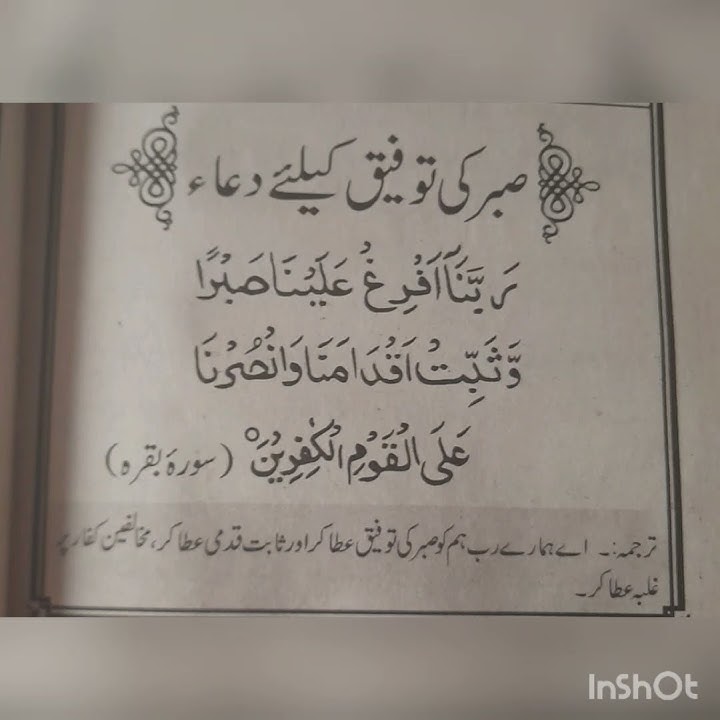 صبر کی توفیق کیلئے دعاء
رَبَّنَآ اَفْرِغْ عَلَيْنَا صَبْرًا
وَّثَبِّتْ اَقْدَامَنَا وَانْصُرْنَا
عَلَى الْقَوْمِ الْكٰفِرِيْنَ (سورۂ بقرہ)
ترجمہ:۔ اے ہمارے رب ہم کو صبر کی توفیق عطا کر اور ثابت قدمی عطا کر، مخالفین کفار پر
غلبہ عطا کر۔
InShOt